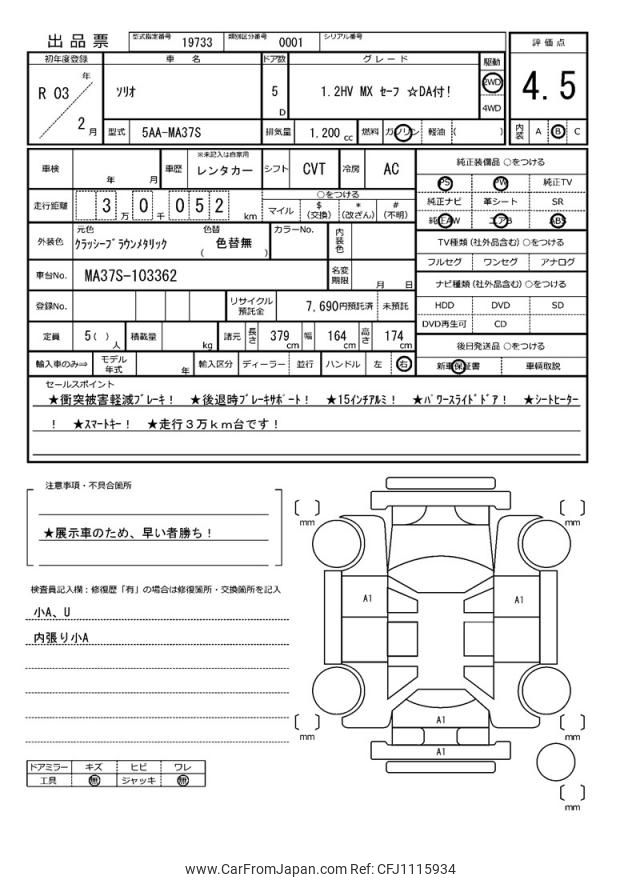 出品票 型式指定番号 19733 類別区分番号 0001 シリアル番号
評価点
4.5
内装 A B C
初年度登録 車名 ドア数 グレード 駆動
R 03 年 2 月
ソリオ
5 D
1.2HV MX セーフ ☆DA付!
2WD
4WD
型式 5AA-MA37S 排気量 1,200 cc 燃料 ガソリン 軽油 ( )
車検 年 月 車歴 ※未記入は自家用 レンタカー シフト CVT 冷房 AC
走行距離 3 万 0 千 0 5 2 km
○をつける
マイル $(交換) *(改ざん) #(不明)
外装色 元色 クラッシーブラウンメタリック 色替 色替無 ( ) カラーNo. 内装色
車台No. MA37S-103362 名変期限 月 日
登録No. リサイクル預託金 7,690円預託済 未預託
定員 5( )人 積載量 kg 諸元 長さ 379 cm 幅 164 cm 高さ 174 cm
輸入車のみ⇒ モデル年式 年 輸入区分 ディーラー 並行 ハンドル 左 右
純正装備品 ○をつける
PS PW 純正TV
純正ナビ 革シート SR
純正AW エアB ABS
TV種類(社外品含む)○をつける
フルセグ ワンセグ アナログ
ナビ種類(社外品含む)○をつける
HDD DVD SD
DVD再生可 CD
後日発送品 ○をつける
新車保証書 車輌取説
セールスポイント
★衝突被害軽減ブレーキ! ★後退時ブレーキサポート! ★15インチアルミ! ★パワースライドドア! ★シートヒーター
! ★スマートキー! ★走行3万km台です!
注意事項・不具合箇所
★展示車のため、早い者勝ち!
検査員記入欄:修復歴「有」の場合は修復箇所・交換箇所を記入
小A、U
内張り小A
ドアミラー キズ ヒビ ワレ
工具 無 ジャッキ 無
mm
mm
A1
A1
A1
A1
mm
mm
mm
www.CarFromJapan.com Ref: CFJ1115934